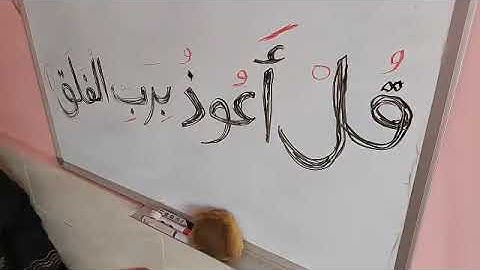 قُلْ أَعُوذُ بِرَبِ الْفَلَقِ